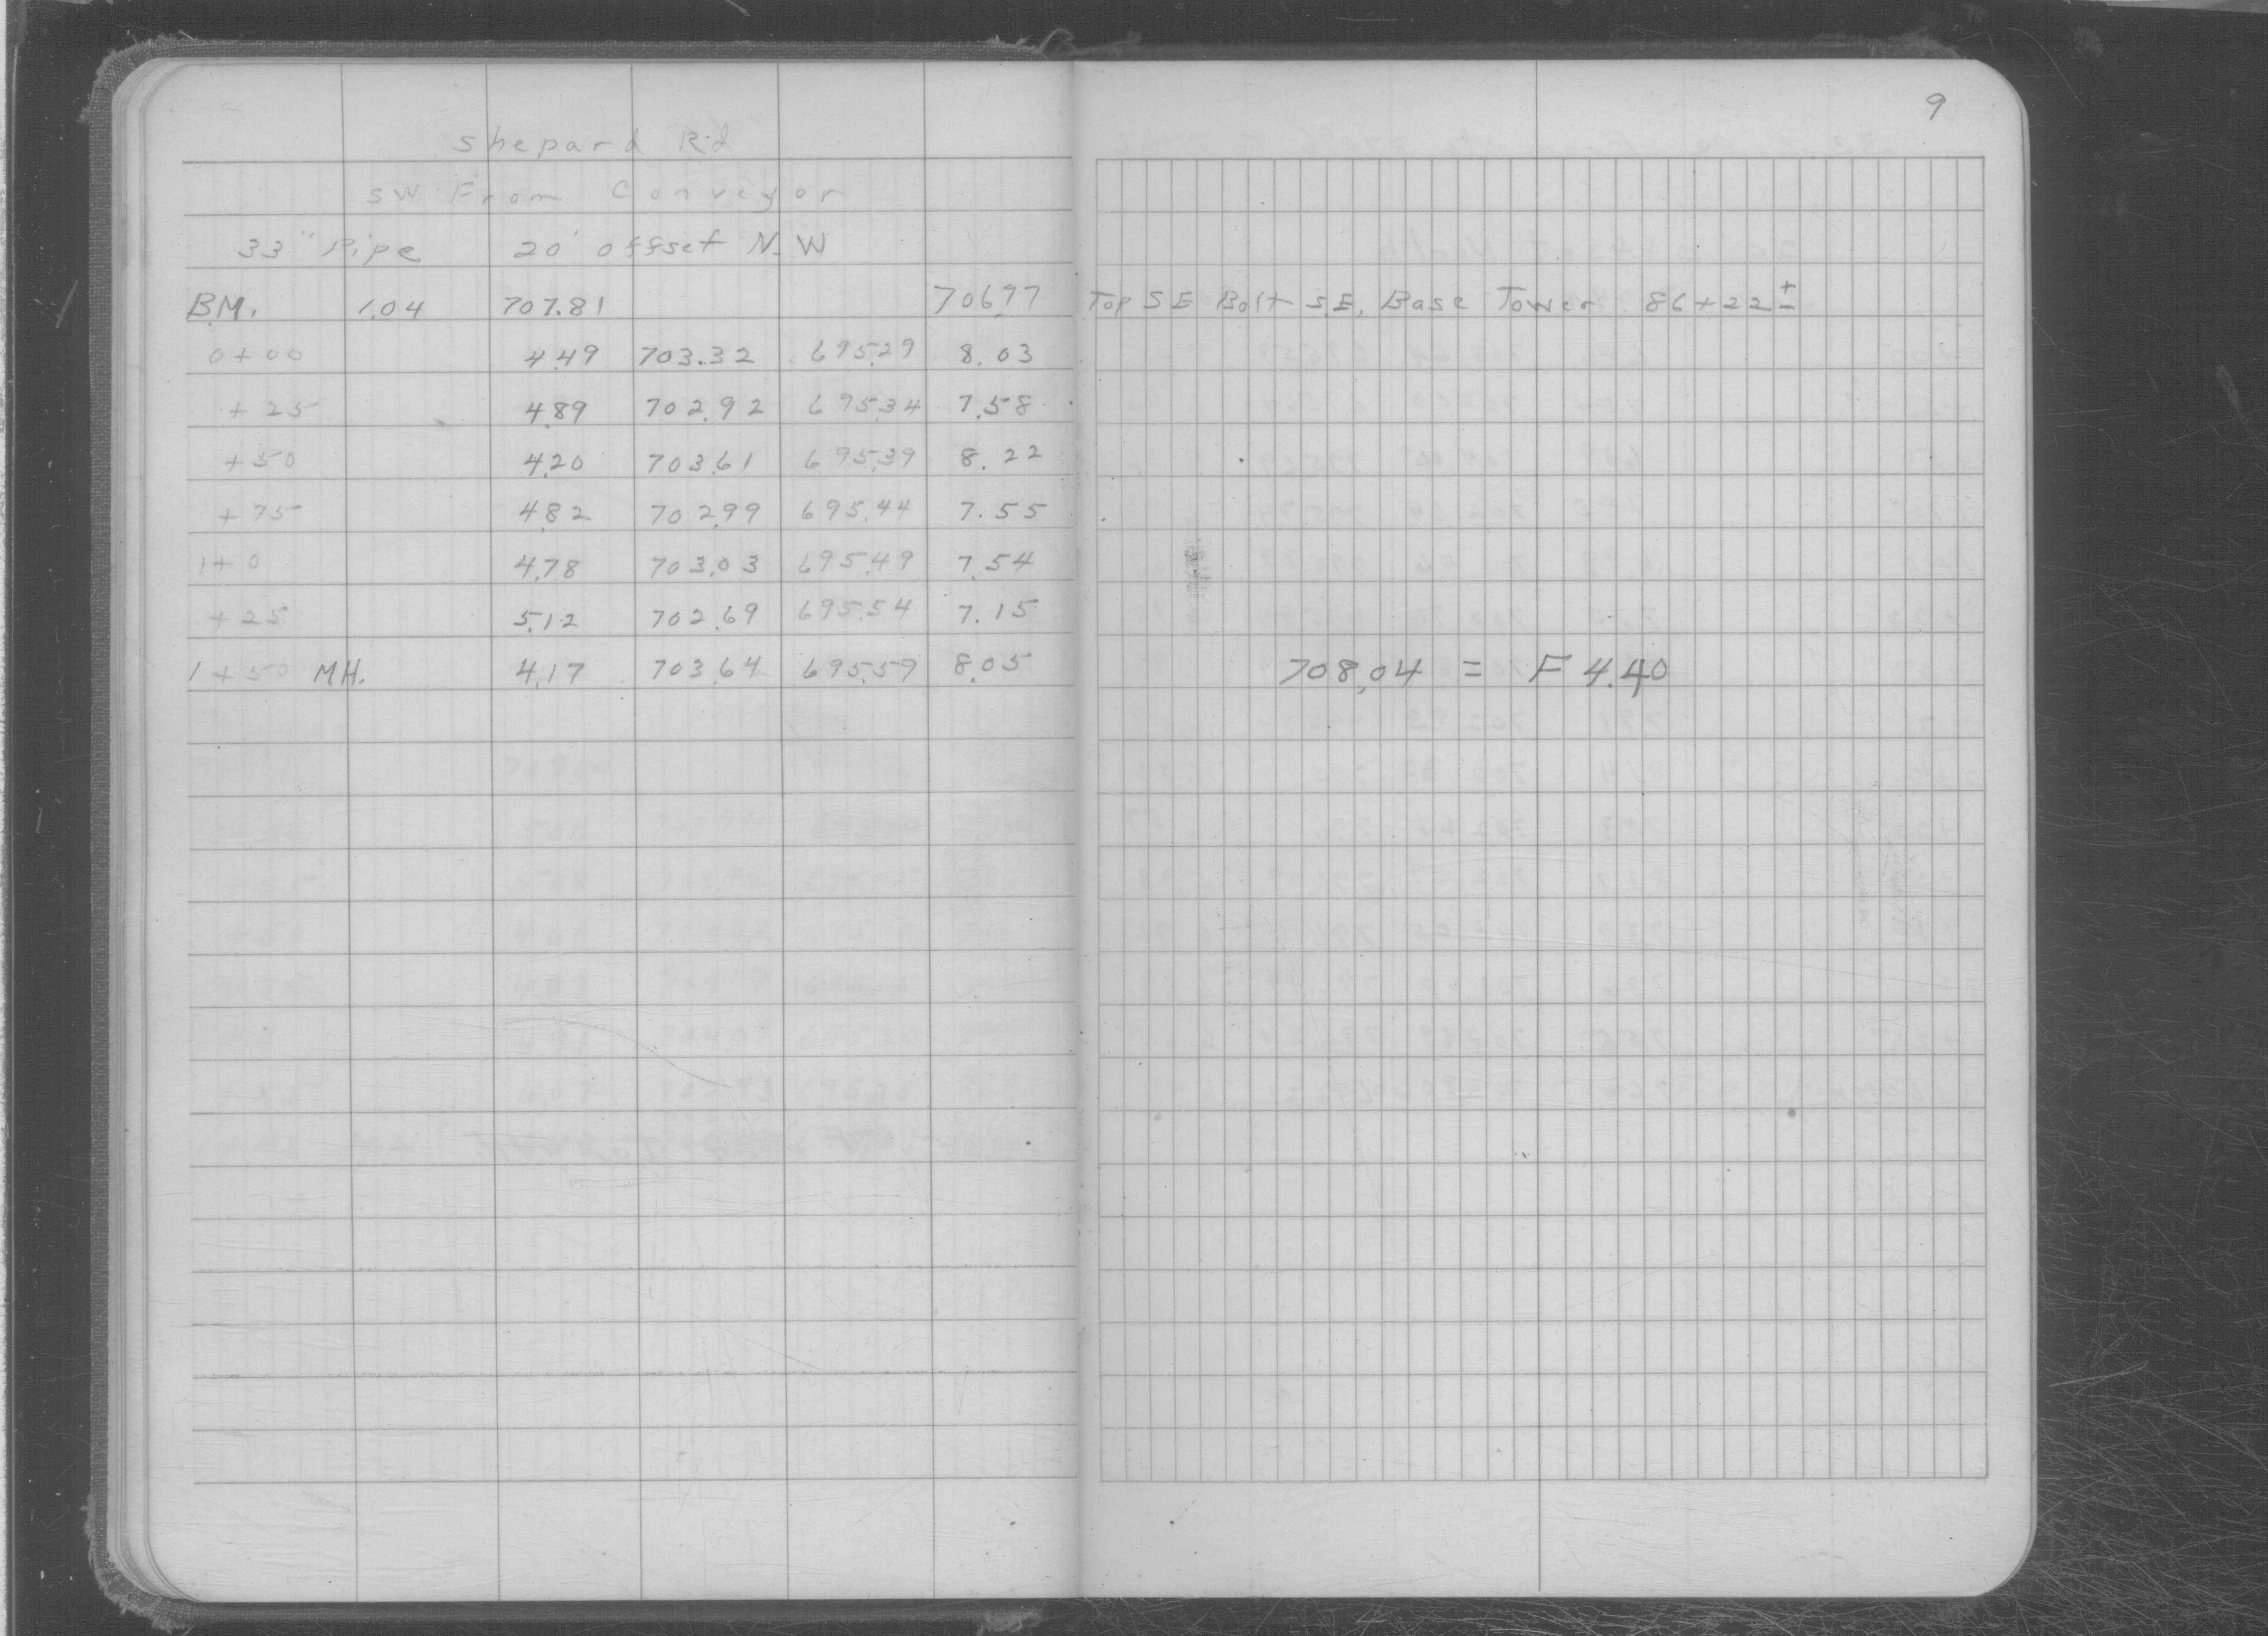 9
Shepard Rd
SW From Conveyor
33" Pipe 20' offset N.W
B.M. 1.04 707.81 706.77 Top SE Bolt S.E. Base Tower 86+22±
0+00 4.49 703.32 695.29 8.03
+25 4.89 702.92 695.34 7.58
+50 4.20 703.61 695.39 8.22
+75 4.82 702.99 695.44 7.55
1+0 4.78 703.03 695.49 7.54
+25 5.12 702.69 695.54 7.15
1+50 MH. 4.17 703.64 695.59 8.05 708.04 = F 4.40